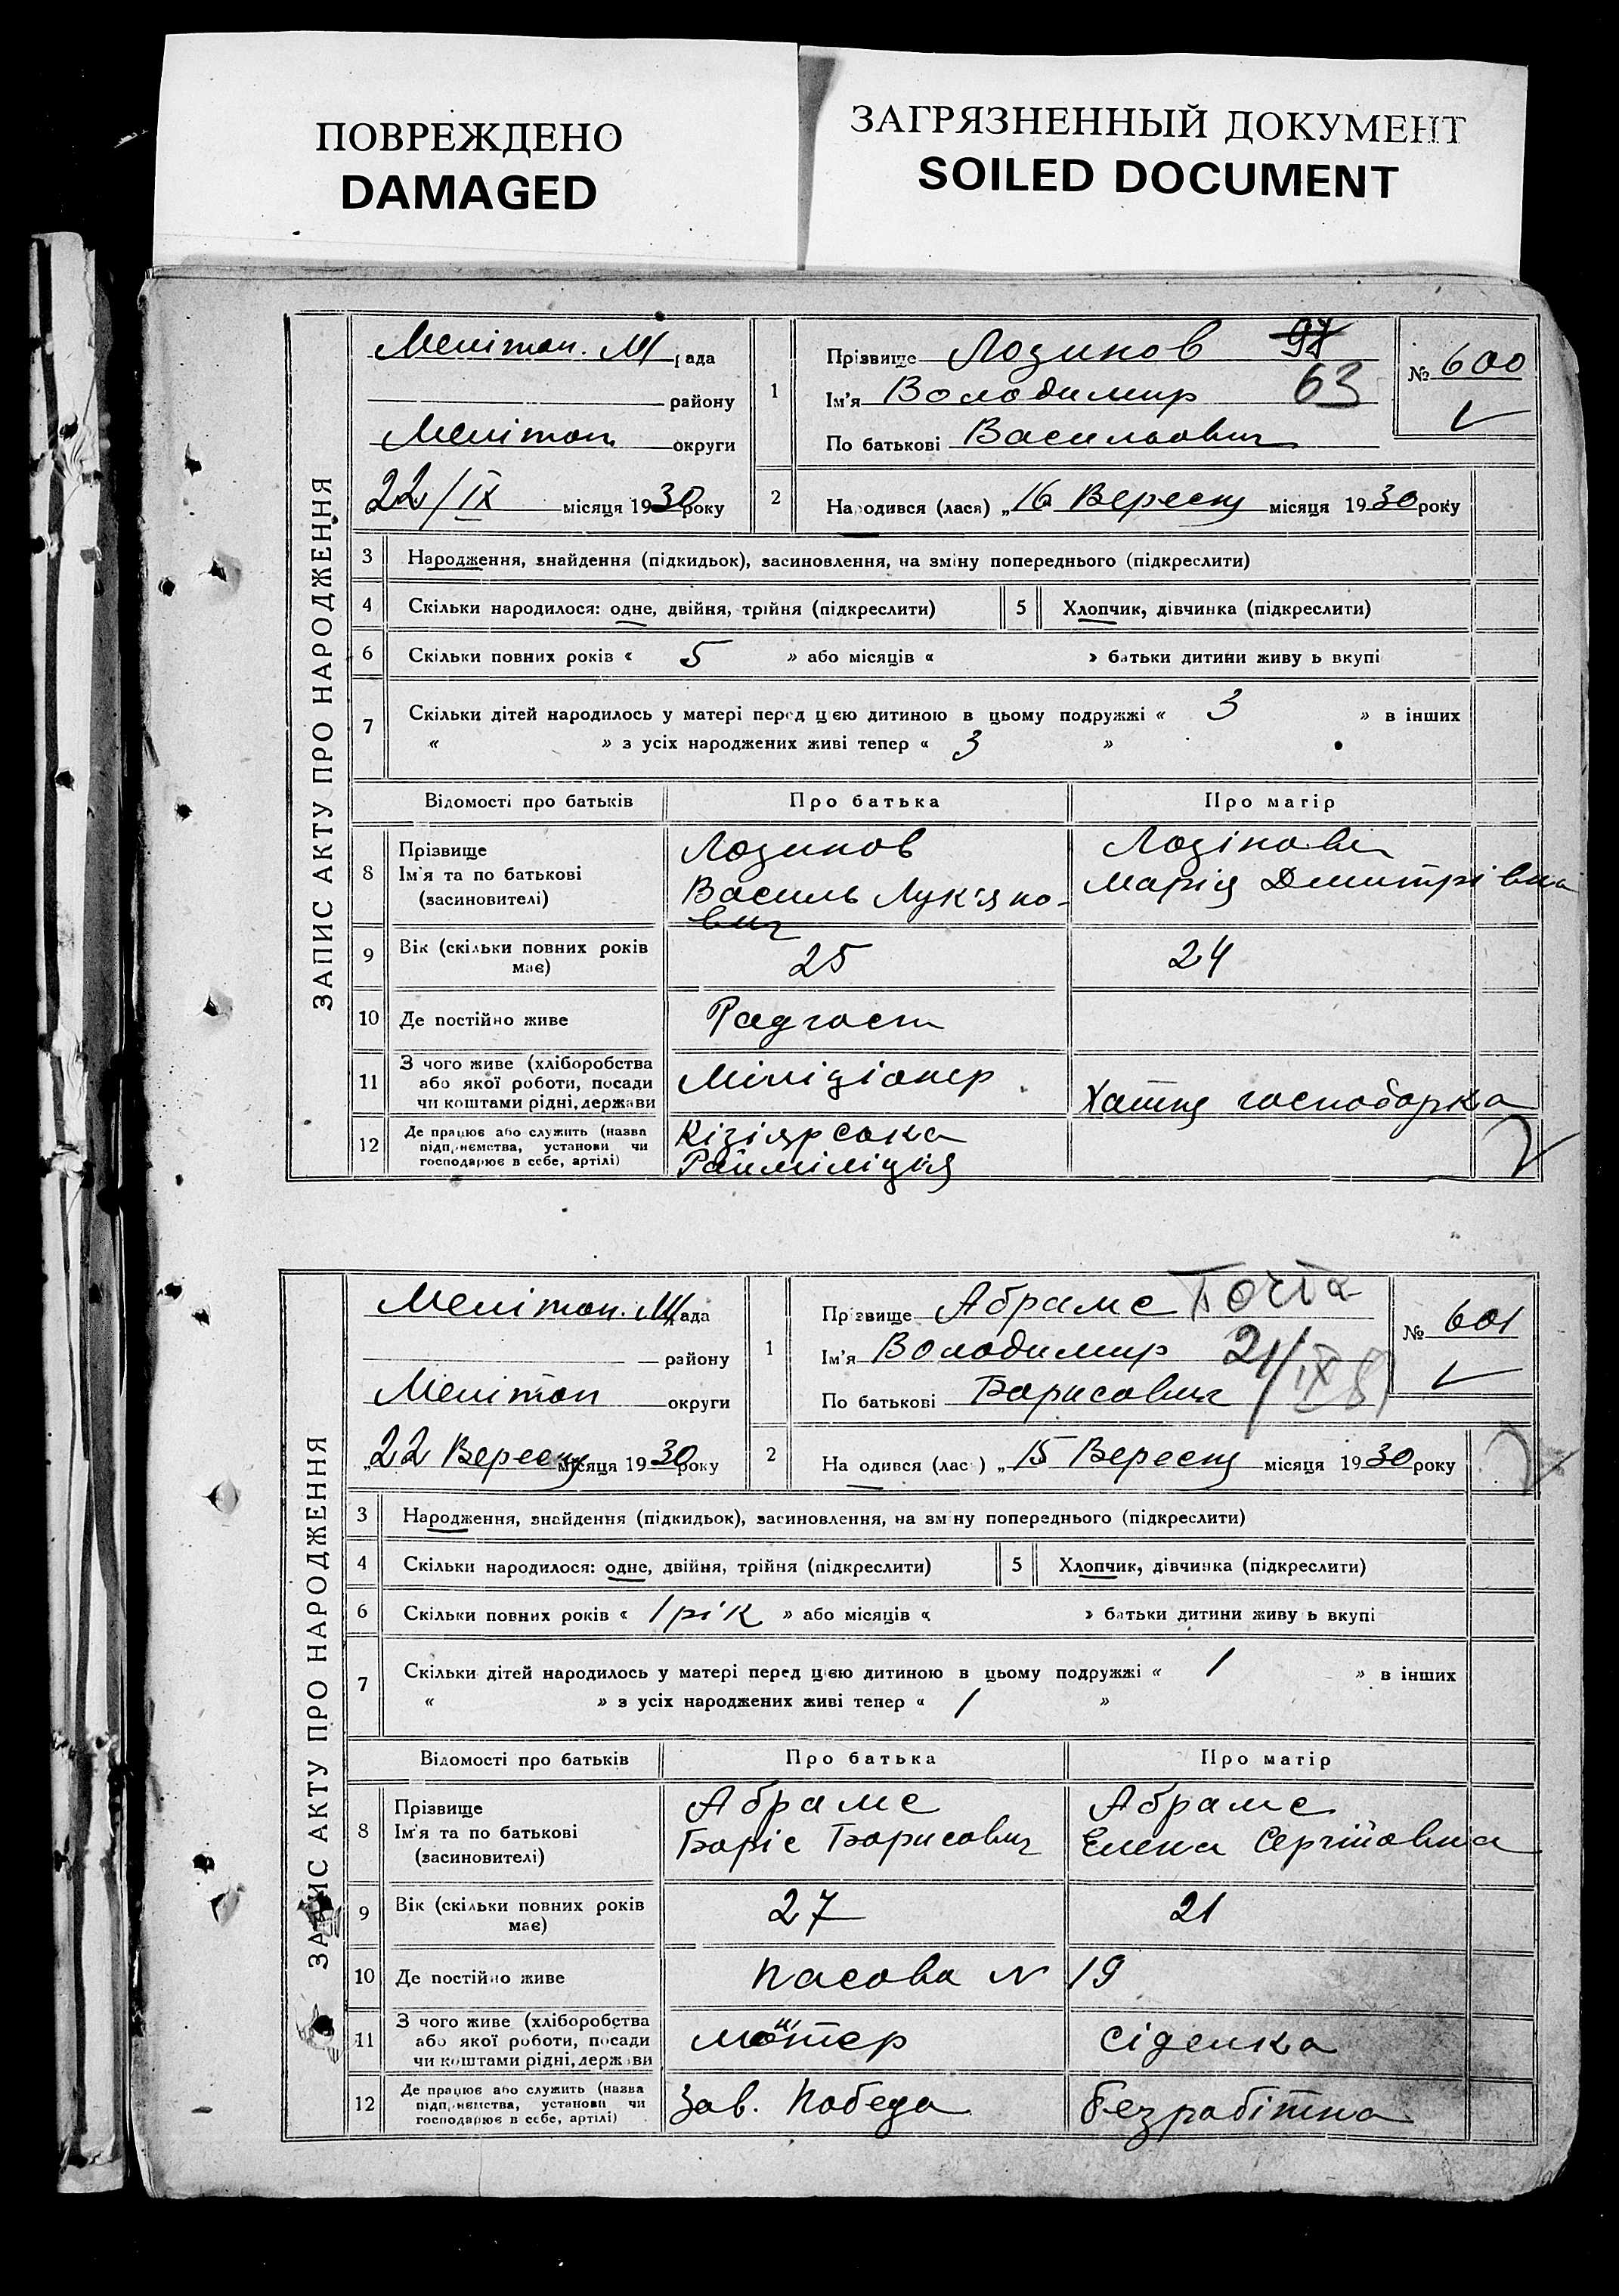 ПОВРЕЖДЕНО
DAMAGED
ЗАГРЯЗНЕННЫЙ ДОКУМЕНТ
SOILED DOCUMENT
ЗАПИС АКТУ ПРО НАРОДЖЕННЯ
Мелітоп. М/рада
району
Мелітоп. округи
22/IX місяця 1930 року
1
Прізвище Лозинов 97
Ім'я Володимир 63
По батькові Васильович
№ 600
2 Народився (лася) „16 Вересня місяця 1930 року
3 Народження, знайдення (підкидьок), засиновлення, на зміну попереднього (підкреслити)
4 Скільки народилося: одне, двійня, трійня (підкреслити) 5 Хлопчик, дівчинка (підкреслити)
6 Скільки повних років « 5 » або місяців « » батьки дитини живуть вкупі
7 Скільки дітей народилось у матері перед цією дитиною в цьому подружжі « 3 » в інших
« » з усіх народжених живі тепер « 3 »
Відомості про батьків Про батька Про матір
8 Прізвище
Ім'я та по батькові
(засиновителі)
Лозинов
Василь Лук'яно-
вич
Лозінова
Марія Дмитрівна
9 Вік (скільки повних років
має)
25
24
10 Де постійно живе
Радгосп
11 З чого живе (хліборобства
або якої роботи, посади
чи коштами рідні, держави
Міліціонер
Хатня господарка
12 Де працює або служить (назва
підприємства, установи чи
господарює в себе, артілі)
Кізіярська
Райміліція
ЗАПИС АКТУ ПРО НАРОДЖЕННЯ
Мелітоп. М/рада
району
Мелітоп округи
„22 Вересня місяця 1930 року
1
Прізвище Абраме Почта
Ім'я Володимир 21/IX
По батькові Борисович
№ 601
2 Народився (лася) „15 Вересня місяця 1930 року
3 Народження, знайдення (підкидьок), засиновлення, на зміну попереднього (підкреслити)
4 Скільки народилося: одне, двійня, трійня (підкреслити) 5 Хлопчик, дівчинка (підкреслити)
6 Скільки повних років « 1 рік » або місяців « » батьки дитини живуть вкупі
7 Скільки дітей народилось у матері перед цією дитиною в цьому подружжі « 1 » в інших
« » з усіх народжених живі тепер « 1 »
Відомості про батьків Про батька Про матір
8 Прізвище
Ім'я та по батькові
(засиновителі)
Абраме
Боріс Борисович
Абраме
Елена Сергіївна
9 Вік (скільки повних років
має)
27
21
10 Де постійно живе
Пасова № 19
11 З чого живе (хліборобства
або якої роботи, посади
чи коштами рідні, держави
Сіделка
12 Де працює або служить (назва
підприємства, установи чи
господарює в себе, артілі)
Зав. Победа
безробітна